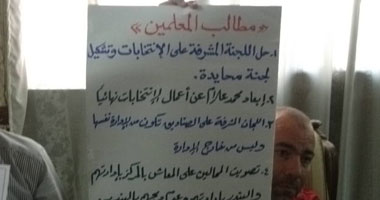 «مطالب المعلمين»
١- حل اللجنة المشرفة على الإنتخابات وتشكيل
لجنة محايدة.
٢- إبعاد محمد عمارة عن أعمال الإنتخابات نهائيا
٣- اللجان المشرفة على الصناديق تكون من الإدارة نفسها
وليس من خارج الإدارة
٤- تصويت المحالين على المعاش بالمركز بإدارتهم
والبندر بإدارتهم